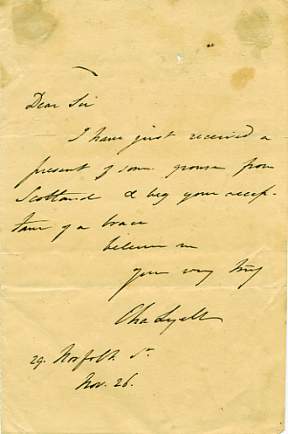 Dear Sir
I have just received a
present of some grouse from
Scotland & beg your accep-
tance of a brace
believe me
your very truly
Cha Lyell
29. Norfolk St.
Nov. 26.